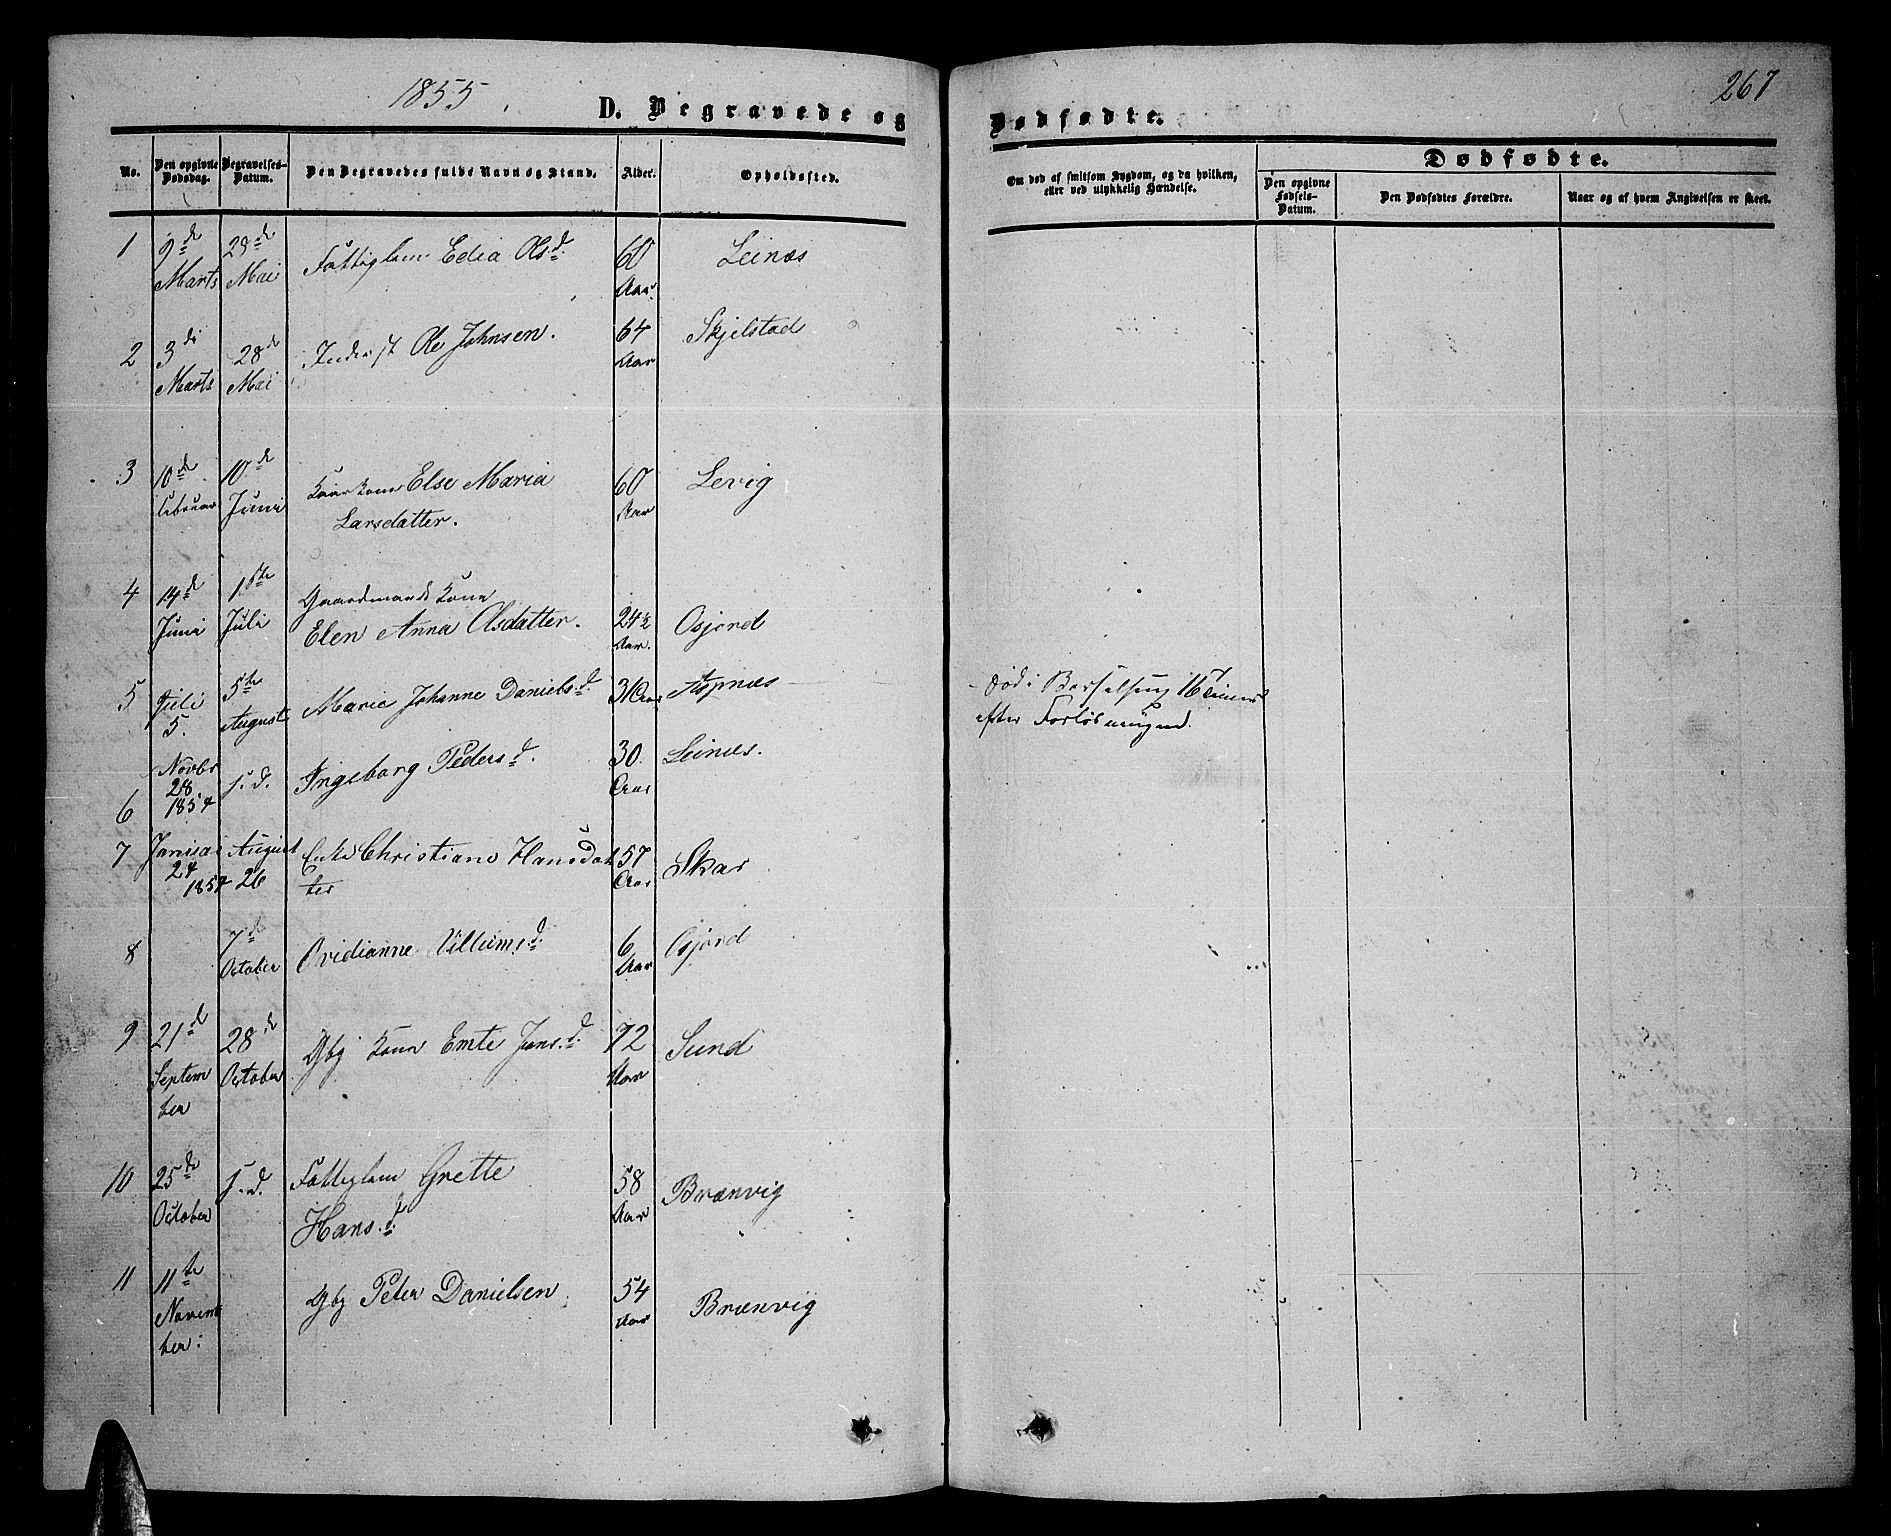 1855.
267
D. Begravede og Dødfødte.
No.
Den opgivne Dødsdag.
Begravelses-Datum.
Den Begravedes fulde Navn og Stand.
Alder.
Opholdssted.
Om død af smitsom Sygdom, og da hvilken, eller ved ulykkelig Hændelse.
Dødfødte.
Den opgivne Fødsels-Datum.
Den Dødfødtes Forældre.
Naar og af hvem Angivelsen er skeet.
1 9de Marts 29de Mai Fattiglem Edia Olsd. 60 Aar. Leinæs
2 3di Marts 28de Mai Inderst Ole Johnsen. 64 Aar Skjelstad
3 10de Februar 10de Juni Kaarkone Else Maria
Larsdatter. 60 Aar Levig
4 14d Juni 1ste Juli Gaardmands Kone
Elen Anna Olsdatter. 24½ Aar. Osjord
5 Juli 5. 5te August Marie Johanne Daniels.d. 31 Aar Aspnæs
død i Barselseng 16 Timer
efter Forløsningen.
6 Novbr 28 1854 s.d. Ingeborg Peders d. 30. Aar Leinæs.
7 Januar 24 1854 August 26 Enke Christiane Hansdat
ter 57 Aar Skar
8 7de October Ovidianne Villums.d. 6 Aar Osjord
9 21de September 28de October Gbr Kone Emte Jans.d. 72 Aar Sund
10 25de October s.d. Fattiglem Grette
Hans.d. 58 Aar Brænvig
11 11te November. Gbr Peter Danielsen 54 Aar Brænvig